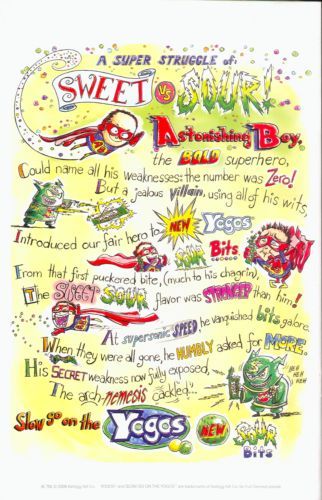 A SUPER STRUGGLE of:
SWEET vs SOUR!
Astonishing Boy,
the BALD superhero,
Could name all his weaknesses: the number was Zero!
But a jealous Villain, using all of his wits,
Introduced our fair hero to NEW Yogos
SOUR Bits...
From that first puckered bite, (much to his chagrin),
The SWEET SOUR flavor was STRONGER than him!
At supersonic SPEED he vanquished bits galore.
When they were all gone, he HUMBLY asked for MORE.
His SECRET weakness now fully exposed,
HEH HEH HEH
The arch-nemesis cackled...
Slow go on the Yogos NEW SOUR Bits